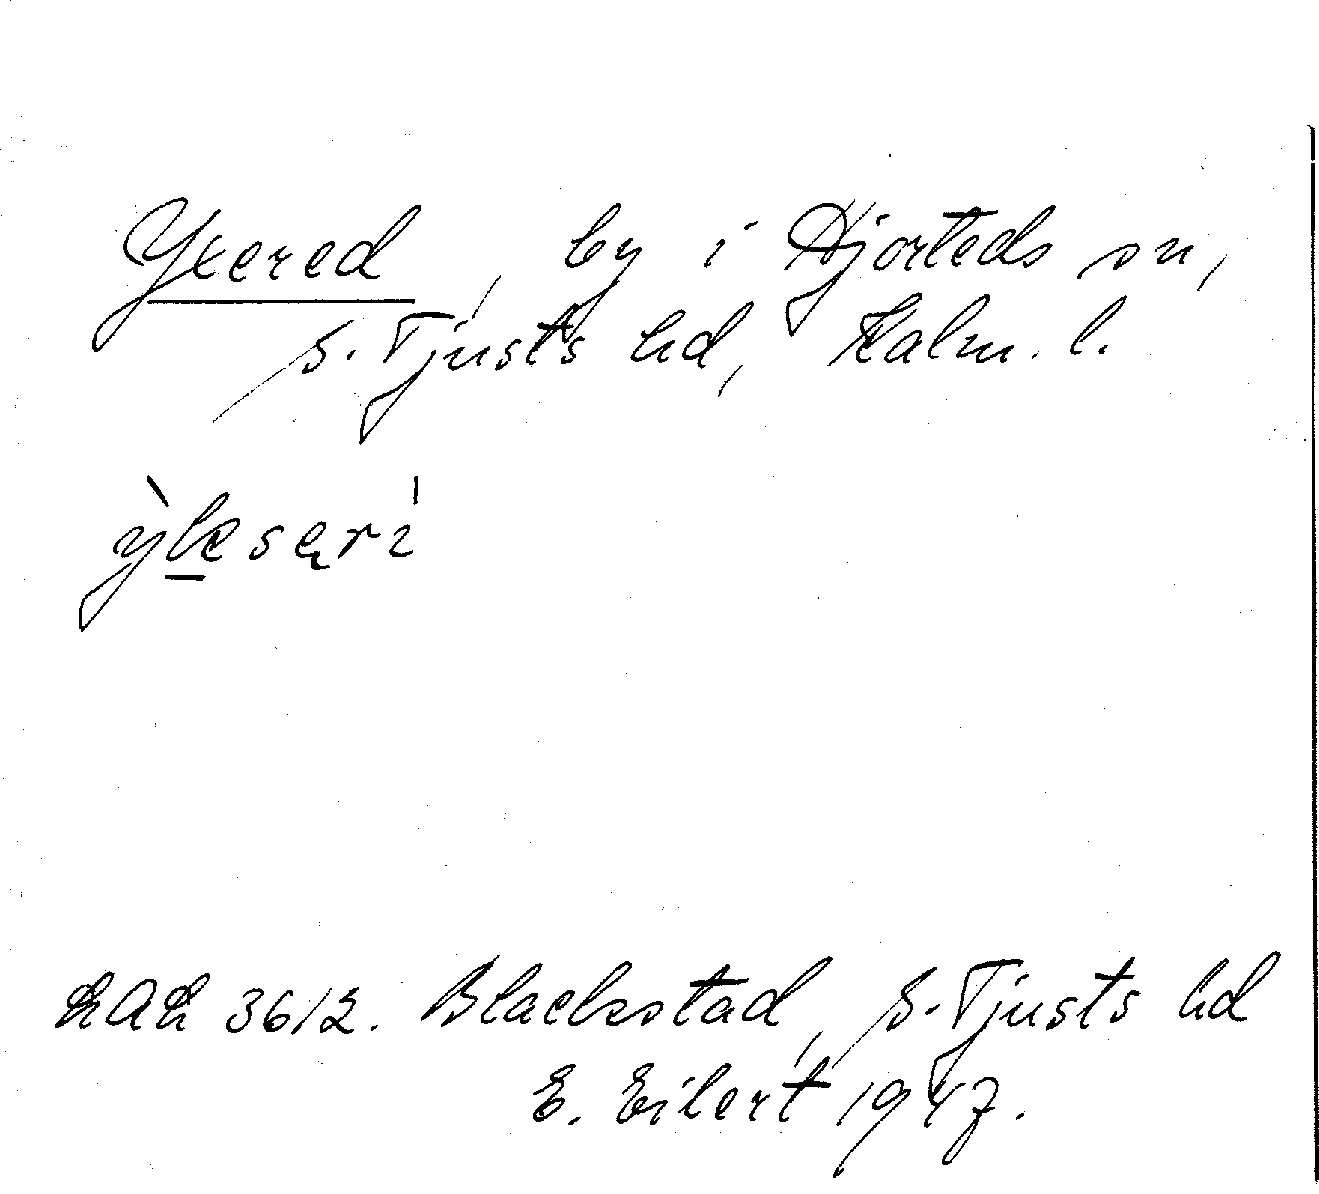 Yxered, by i Hjorteds sn,
S. Tjusts hd, Kalm. l.
ỳksęrí
LAL 3612. Blackstad, S. Tjusts hd
E. Eilert 1947.